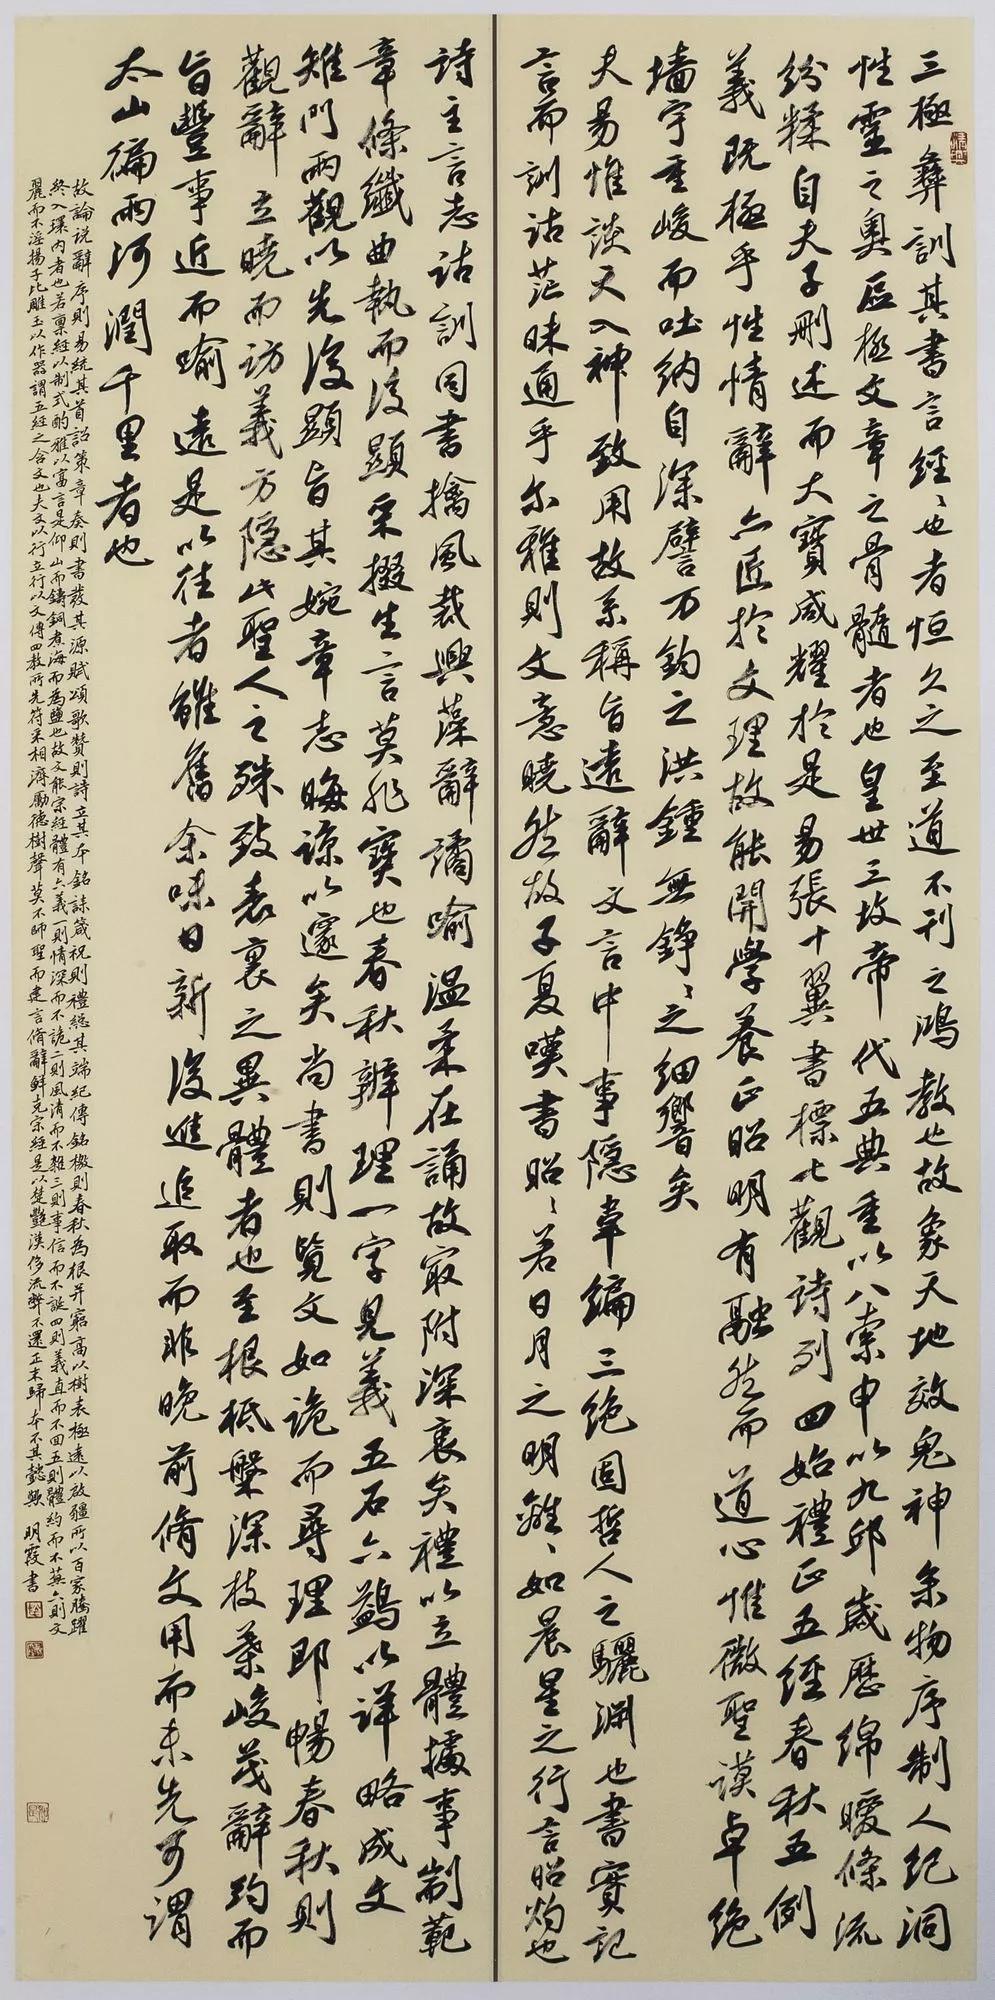 三極彝訓其書言經〻也者恒久之至道不刊之鴻教也故象天地效鬼神參物序制人紀洞
性靈之奧區極文章之骨髓者也皇世三墳帝代五典重以八索申以九邱歲歷綿曖條流
紛糅自夫子刪述而大寶咸耀於是易張十翼書標七觀詩列四始禮正五經春秋五例
義既極乎性情辭亦匠於文理故能開學養正昭明有融然而道心惟微聖謨卓絕
墻宇重峻而吐納自深譬万鈞之洪鍾無錚〻之細響矣
夫易惟談天入神致用故系稱旨遠辭文言中事隱韋編三絕固哲人之驪淵也書實記
言而訓詁茫昧通乎尔雅則文意曉然故子夏嘆書昭〻若日月之明離〻如晨星之行言昭灼也
詩主言志詁訓同書摛風裁興藻辭譎喻温柔在誦故㝡附深衷矣禮以立體據事制範
章條纖曲執而後顯采掇生言莫非寶也春秋辨理一字見義五石六鷁以詳略成文
雉門兩觀以先後顯旨其婉章志晦諒以邃矣尚書則覽文如詭而尋理即暢春秋則
觀辭立曉而訪義方隱此聖人之殊致表裏之異體者也至根柢槃深枝葉峻茂辭約而
旨豐事近而喻遠是以往者雖舊余味日新後進追取而非晚前脩文用而未先可謂
太山徧雨河潤千里者也
故論説辭序則易統其首詔策章奏則書發其源賦頌歌贊則詩立其本銘誄箴祝則禮總其端紀傳銘檄則春秋為根并窮高以樹表極遠以啟疆所以百家騰躍
終入環内者也若禀經以制式酌雅以富言是仰山而鑄銅煮海而為鹽也故文能宗經體有六義一則情深而不詭二則風清而不雜三則事信而不誕四則義直而不回五則體約而不蕪六則文
麗而不淫揚子比雕玉以作器謂五經之含文也夫文以行立行以文傳四教所先符采相濟勵德樹聲莫不師聖而建言脩辭鮮克宗經是以楚艷漢侈流弊不還正末歸本不其懿歟 明霞書